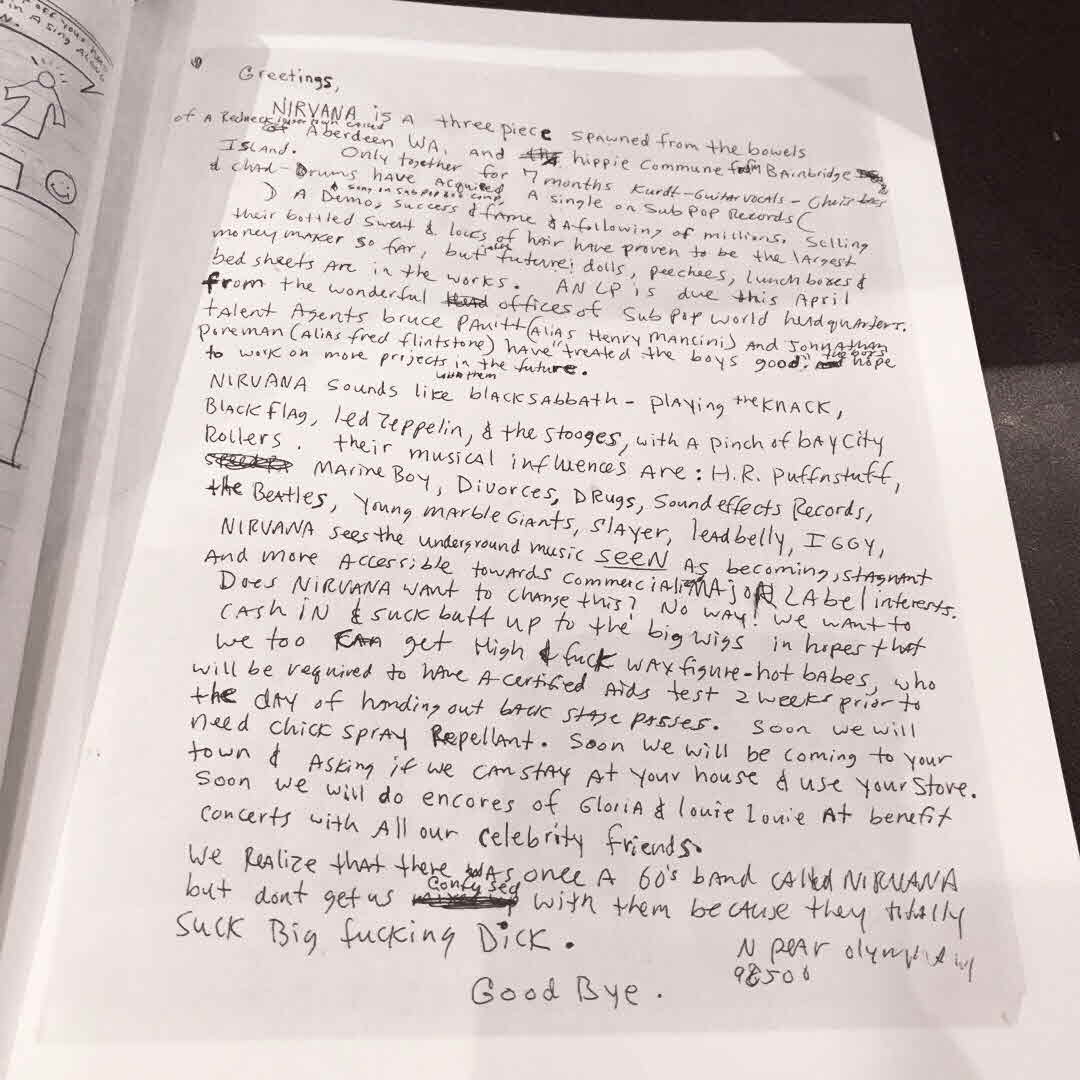 off your
in A Sing Along
Greetings,
NIRVANA is A three piece spawned from the bowels
of A Redneck logger town called Aberdeen WA, and hippie Commune from BAinbridge
ISLAND. Only together for 7 months Kurdt-Guitar vocals - Chris bass
& chad-Drums have Acquired A single on Sub Pop Records (
) A Demo, & song on sub pop 200 comp, success & fame & A following of millions. Selling
their bottled sweat & locks of hair have proven to be the largest
money maker so far, but future: dolls, peechees, lunch boxes &
bed sheets Are in the works. AN LP is due this April
from the wonderful offices of Sub Pop world headquarters.
talent Agents bruce PAvitt (Alias Henry Mancini) And Johnathan
poneman (alias fred flintstone) hAve "treated the boys good". the boys hope
to work on more projects with them in the future.
NIRVANA sounds like blackSabbath - playing the KNACK,
BLACK flag, led Zeppelin, & the stooges, with A pinch of bAy City
Rollers. their musical influences Are: H.R. Puffnstuff,
MArine Boy, Divorces, DRugs, Sound effects Records,
the BeAtles, Young mArble GiAnts, Slayer, leadbelly, IGGY,
NIRVANA sees the underground music SEEN As becoming, stagnant
And more Accessible towards commercialism MAjoR LAbel interests.
Does NIRVANA WANT to change this? No way! we want to
CASH IN & SUCK butt up to the big wigs in hopes that
we too get High & fuck WAX figure-hot bAbes, who
will be required to hAve A certified Aids test 2 weeks prior to
the dAy of handing out bACK stage passes. Soon we will
need Chick Spray Repellant. Soon we will be coming to your
town & Asking if we CAN STAY At Your house & use your Stove.
Soon we will do encores of GloriA & louie Louie At benefit
Concerts with All our celebrity friends.
We Realize that there was once A 60's bAnd CAlled NIRVANA
but dont get us Confused with them because they totally
SUCK Big fucking DiCK.
N peAr olympiA WA
98506
Good Bye.